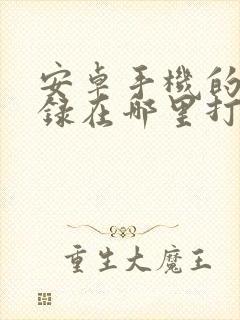 安卓手機的
錄在哪里打
重生大魔王